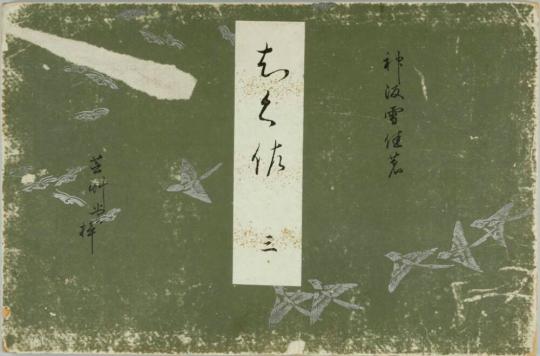 神坂雪佳著
ちく佐 三
芸艸堂梓